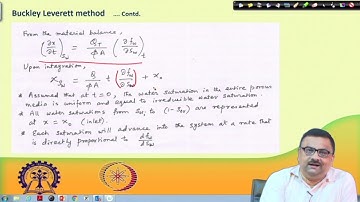 Buckley Leverett method .... Contd.
From the material balance,
(∂x/∂t)_Sw = Q_T/ϕA (∂fw/∂Sw)_t
Upon integration,
x_Sw = Q/ϕA t (∂fw/∂Sw) + x₀
* Assumed that at t=0, the water saturation in the entire porous
media is uniform and equal to irreducible water saturation.
* All water saturations from Swi to (1-Sor) are represented
at x = x₀ (inlet).
* Each saturation will advance into the system at a rate that
is directly proportional to dfw/dSw